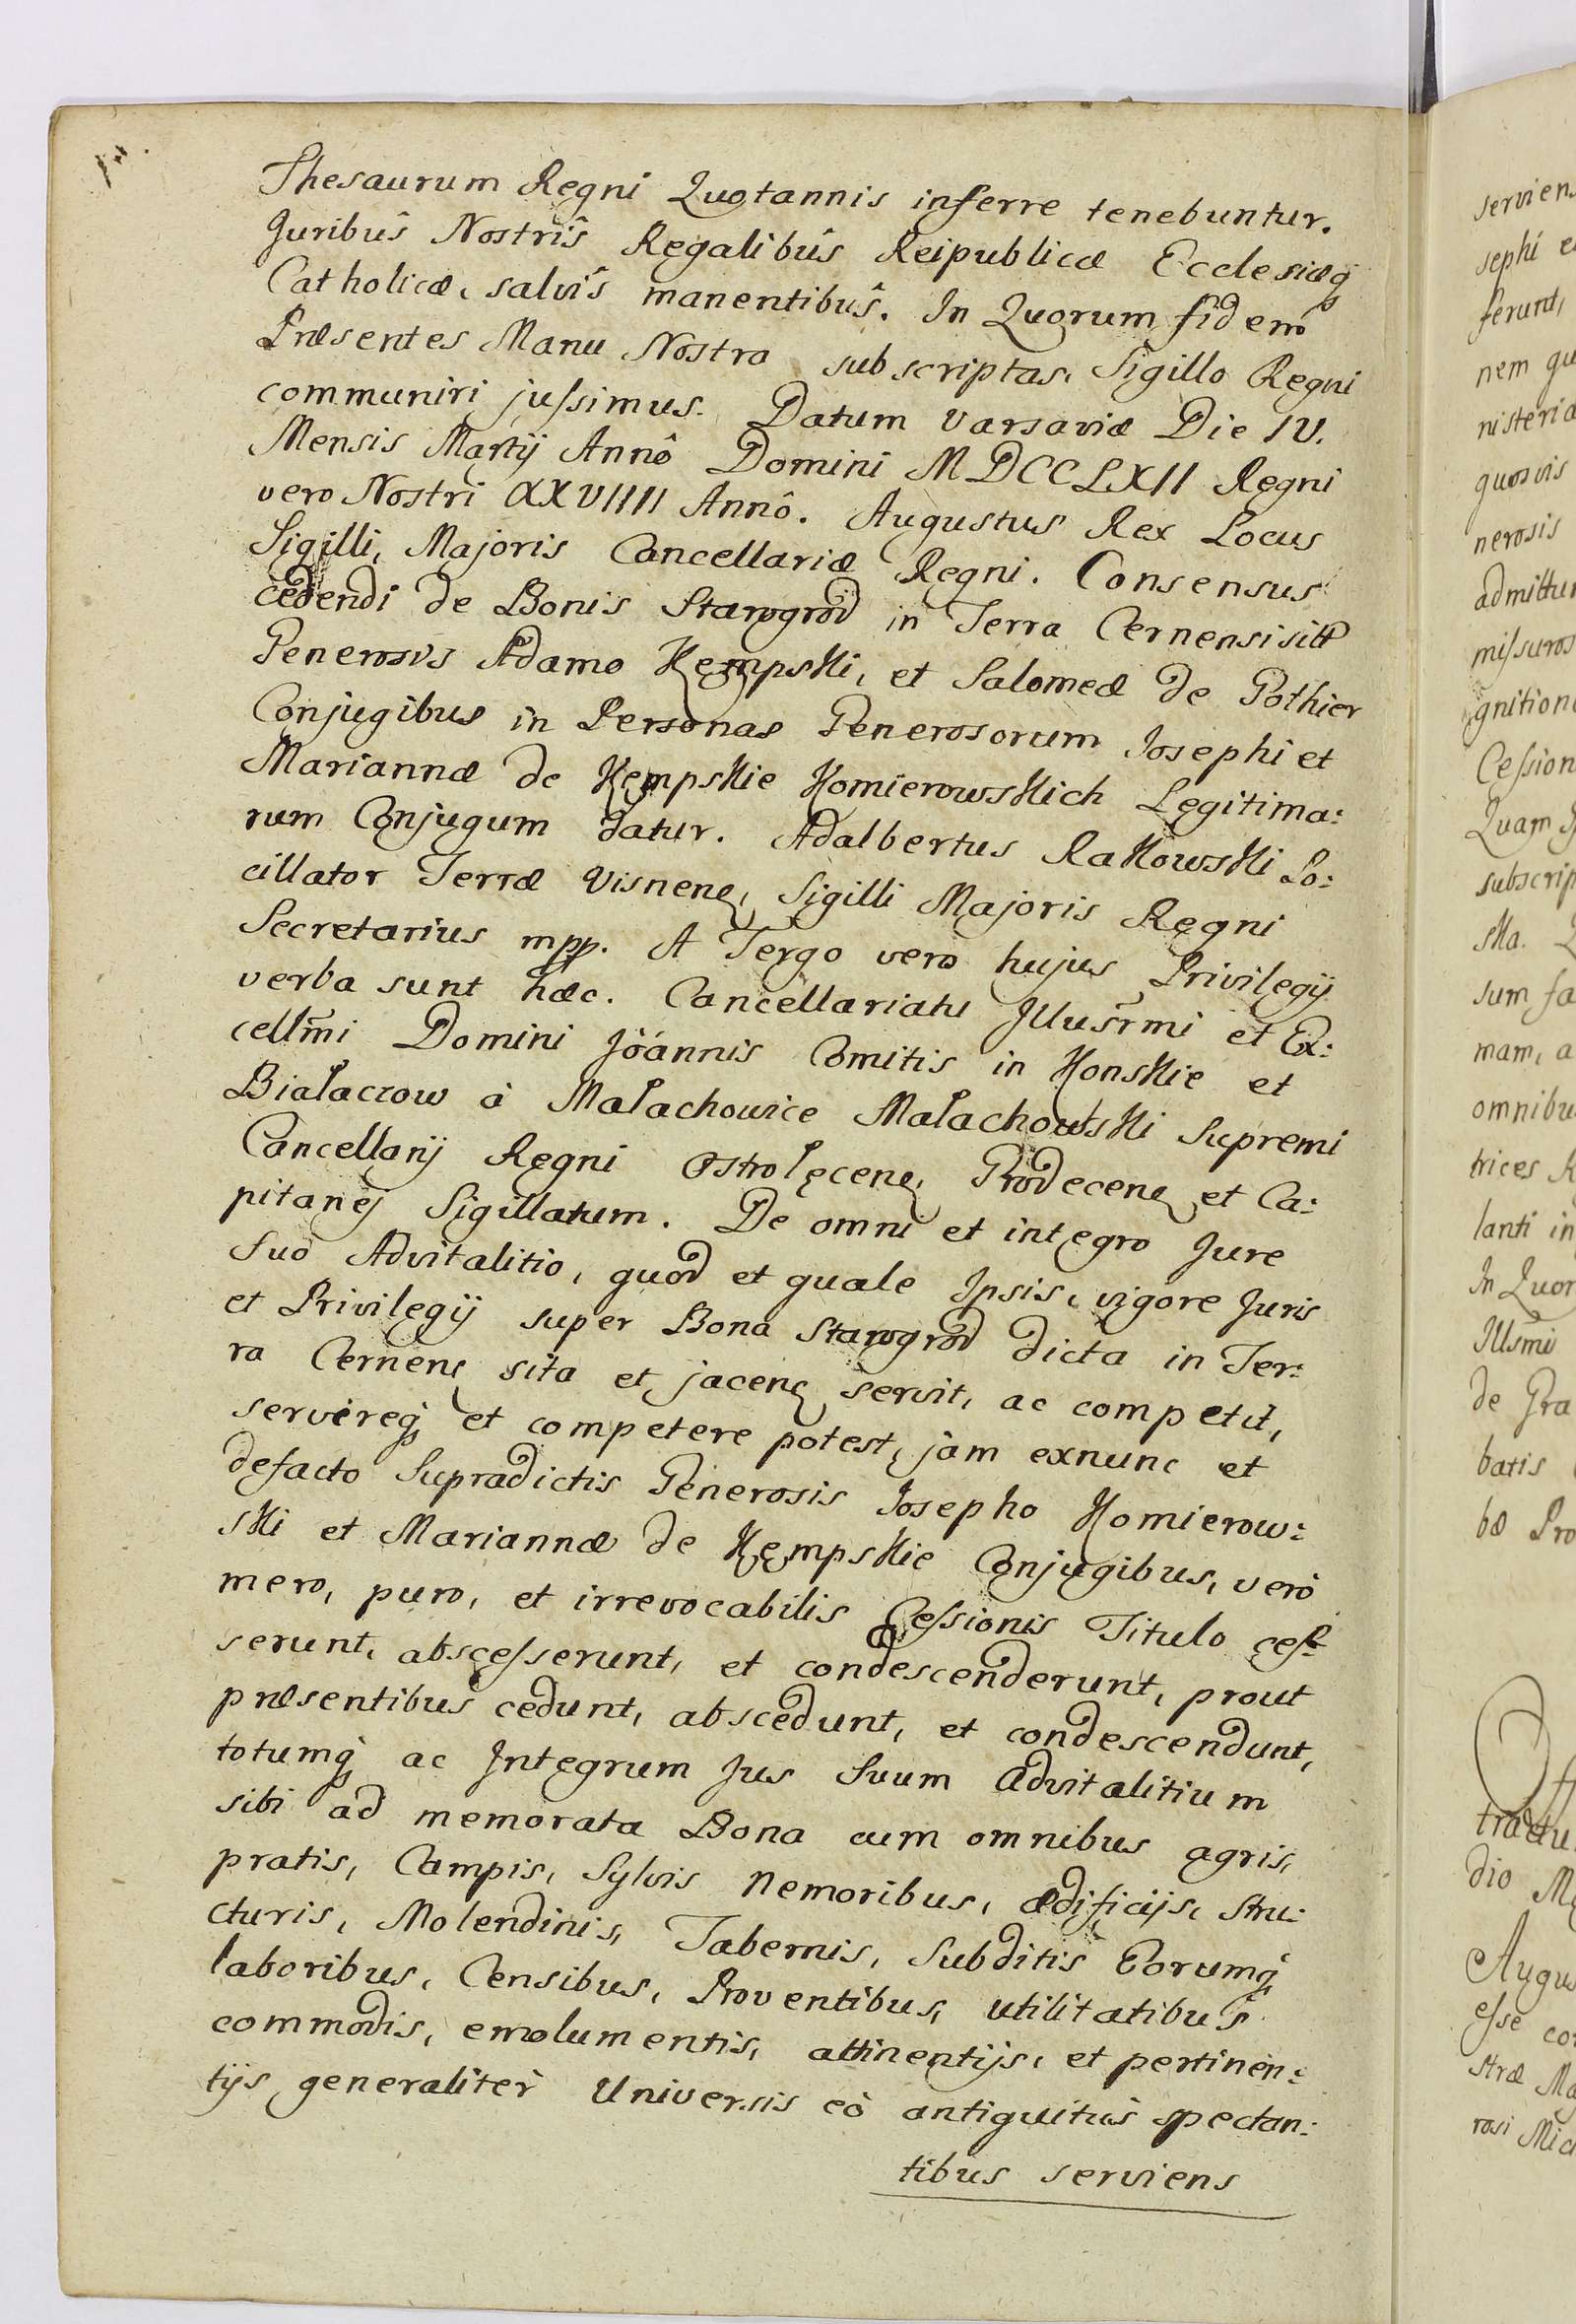 Thesaurum Regni Quotannis inferre tenebuntur.
Juribûs Nostrîs Regalibûs Reipublicæ Ecclesiæq̃
Catholicæ, salvîs manentibûs. In Quorum fidem
Præsentes Manu Nostra subscriptas, Sigillo Regni
communiri jussimus. Datum Varsaviæ Die IV.
Mensis Martij Annô Domini MDCCLXII Regni
vero Nostri XXVIIII Annô. Augustus Rex Locus
Sigilli, Majoris Cancellariæ Regni. Consensus
cedendi de Bonis Starogrod in Terra Cernensi sitt
Generosis Adamo Kempski, et Salomeæ de Pothier
Conjugibus in Personas Generosorum Josephi et
Mariannæ de Kempskie Komierowskich Legitima:
rum Conjugum datur. Adalbertus Rakowski Po:
cillator Terræ Visnenę, Sigilli Majoris Regni
Secretarius mpp. A Tergo vero hujus Privilegij
verba sunt hæc. Cancellariatu Illusr̃mi et Ex:
cellm̃i Domini Jöannis Comitis in Konskie et
Białaczow à Małachowice Małachowski Supremi
Cancellarij Regni Ostrolęcenę, Grodecenę et Ca:
pitanej Sigillatum. De omni et integro Jure
Suo Advitalitio, quod et quale Ipsis, vigore Juris
et Privilegij super Bona Starogrod dicta in Ter:
ra Cernenę sita et jacenę servit, ac competit,
servireq̃ et competere potest, jam exnunc et
defacto Supradictis Generosis Josepho Komierow:
ski et Mariannæ de Kempskie Conjugibus, vero
mero, puro, et irrevocabilis Cessionis Titulo cess:
serunt, abscesserunt, et condescenderunt, prout
præsentibus cedunt, abscedunt, et condescendunt,
totumq̃ ac Integrum Jus Suum Advitalitium
sibi ad memorata Bona cum omnibus agris,
pratis, Campis, Sylvis Nemoribus, ædificijs, stru:
cturis, Molendinis, Tabernis, Subditis Eorumq̃
laboribus, Censibus, Proventibus, utilitatibus
commodis, emolumentis, attinentijs, et pertinen:
tijs generaliter Universis eò antiquitùs spectan:
tibus serviens
serviens
sephi e
ferunt,
nem qu
nisteria
quosvis
nerosis
admittu
missuros
gnition
Cession
Quam
subscrip
ska.
sum fa
mam, a
omnibu
trices
lanti in
In Quor
Illsmi
de Gra
batis
bæ Pro
tradu
dio M
Augus
esse co
stræ Ma
rosi Mic